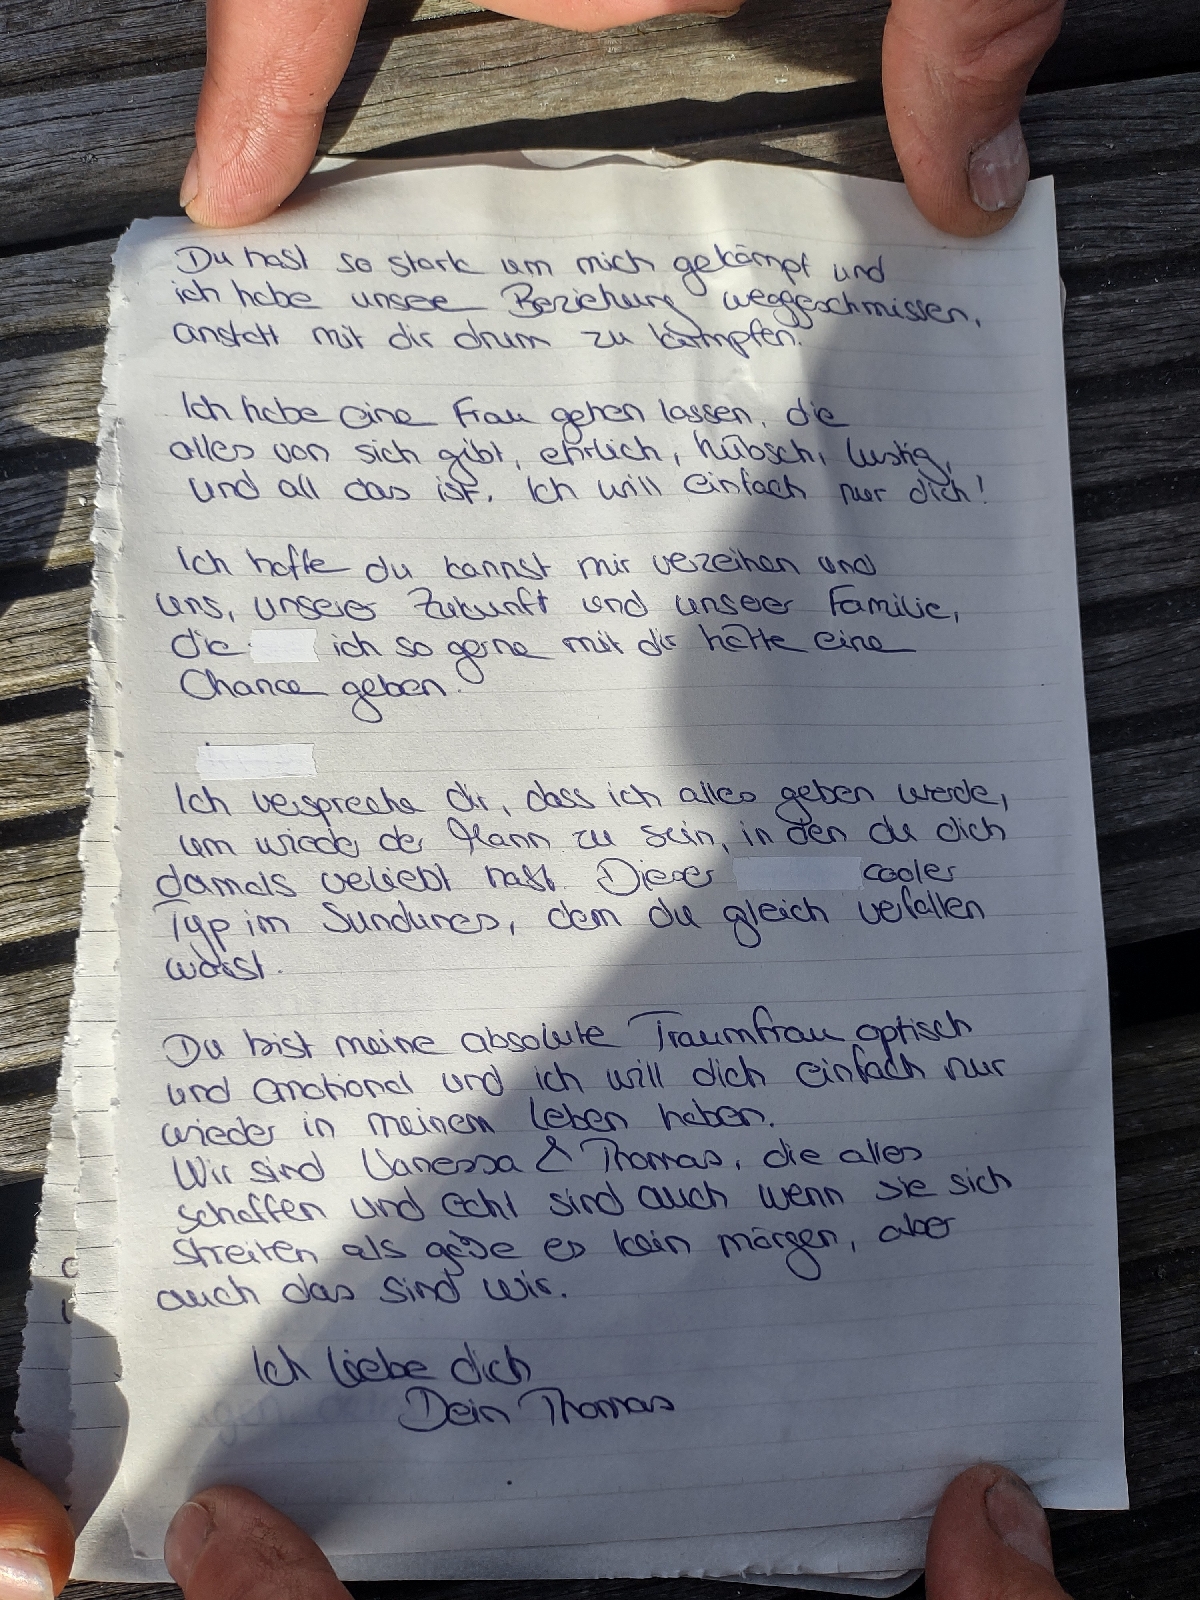 Du hast so stark um mich gekämpft und
ich habe unsere Beziehung weggeschmissen,
anstatt mit dir drum zu kämpfen.
Ich habe eine Frau gehen lassen, die
alles von sich gibt, ehrlich, hübsch, lustig,
und all das ist. Ich will einfach nur dich!
Ich hoffe du kannst mir verzeihen und
uns, unserer Zukunft und unserer Familie,
die ich so gerne mit dir hätte eine
Chance geben.
Ich verspreche dir, dass ich alles geben werde,
um wieder der Mann zu sein, in den du dich
damals verliebt hast. Dieser cooler
Typ im, dem du gleich verfallen
warst.
Du bist meine absolute Traumfrau optisch
und emotional und ich will dich einfach nur
wieder in meinem Leben haben.
Wir sind Vanessa & Thomas, die alles
schaffen und echt sind auch wenn sie sich
streiten als gäbe es kein morgen, aber
auch das sind wir.
Ich liebe dich
Dein Thomas